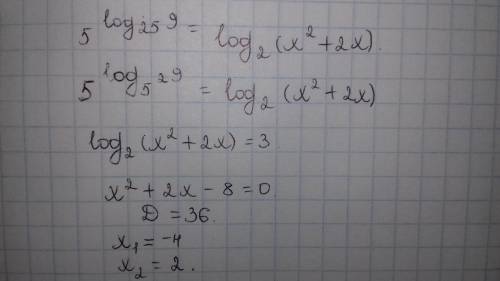 5^{log_{25} 9} = log_2 (x^2 + 2x).
5^{log_{5^2} 9} = log_2 (x^2 + 2x)
log_2 (x^2 + 2x) = 3
x^2 + 2x - 8 = 0
D = 36.
x_1 = -4
x_2 = 2.